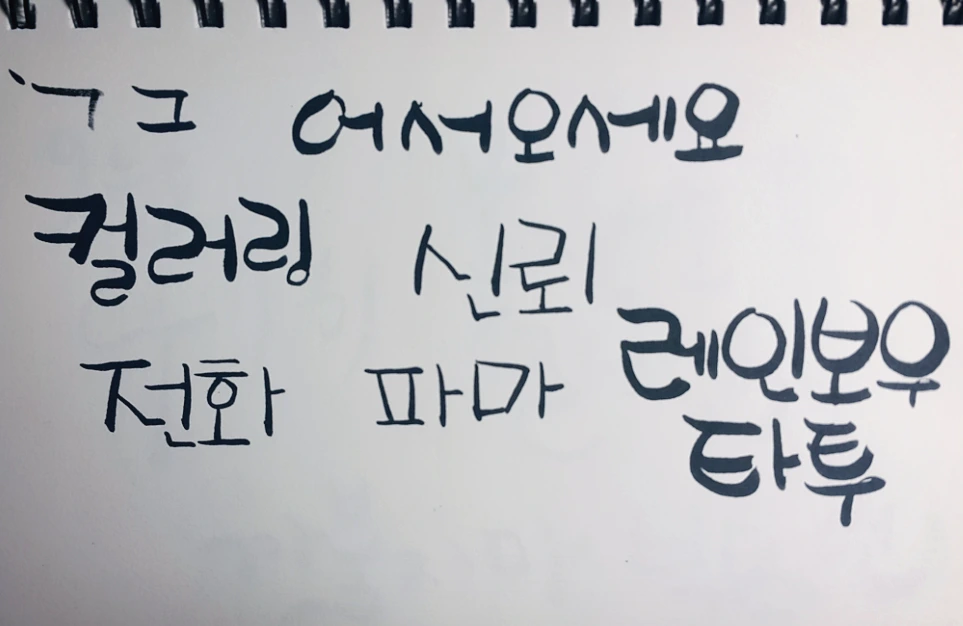 ㄱ 그 어서오세요
컬러링 신뢰
레인보우
전화 파마
타투